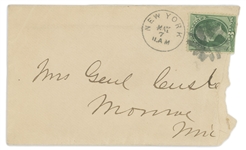 NEW YORK
MAY
7
11 A.M
Mrs Genl Cust
Monroe
Mic